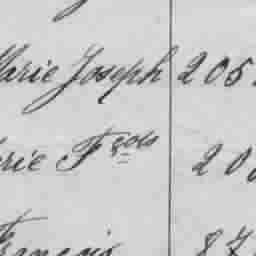 Marie Joseph 205
rie Fçois 20
François 87